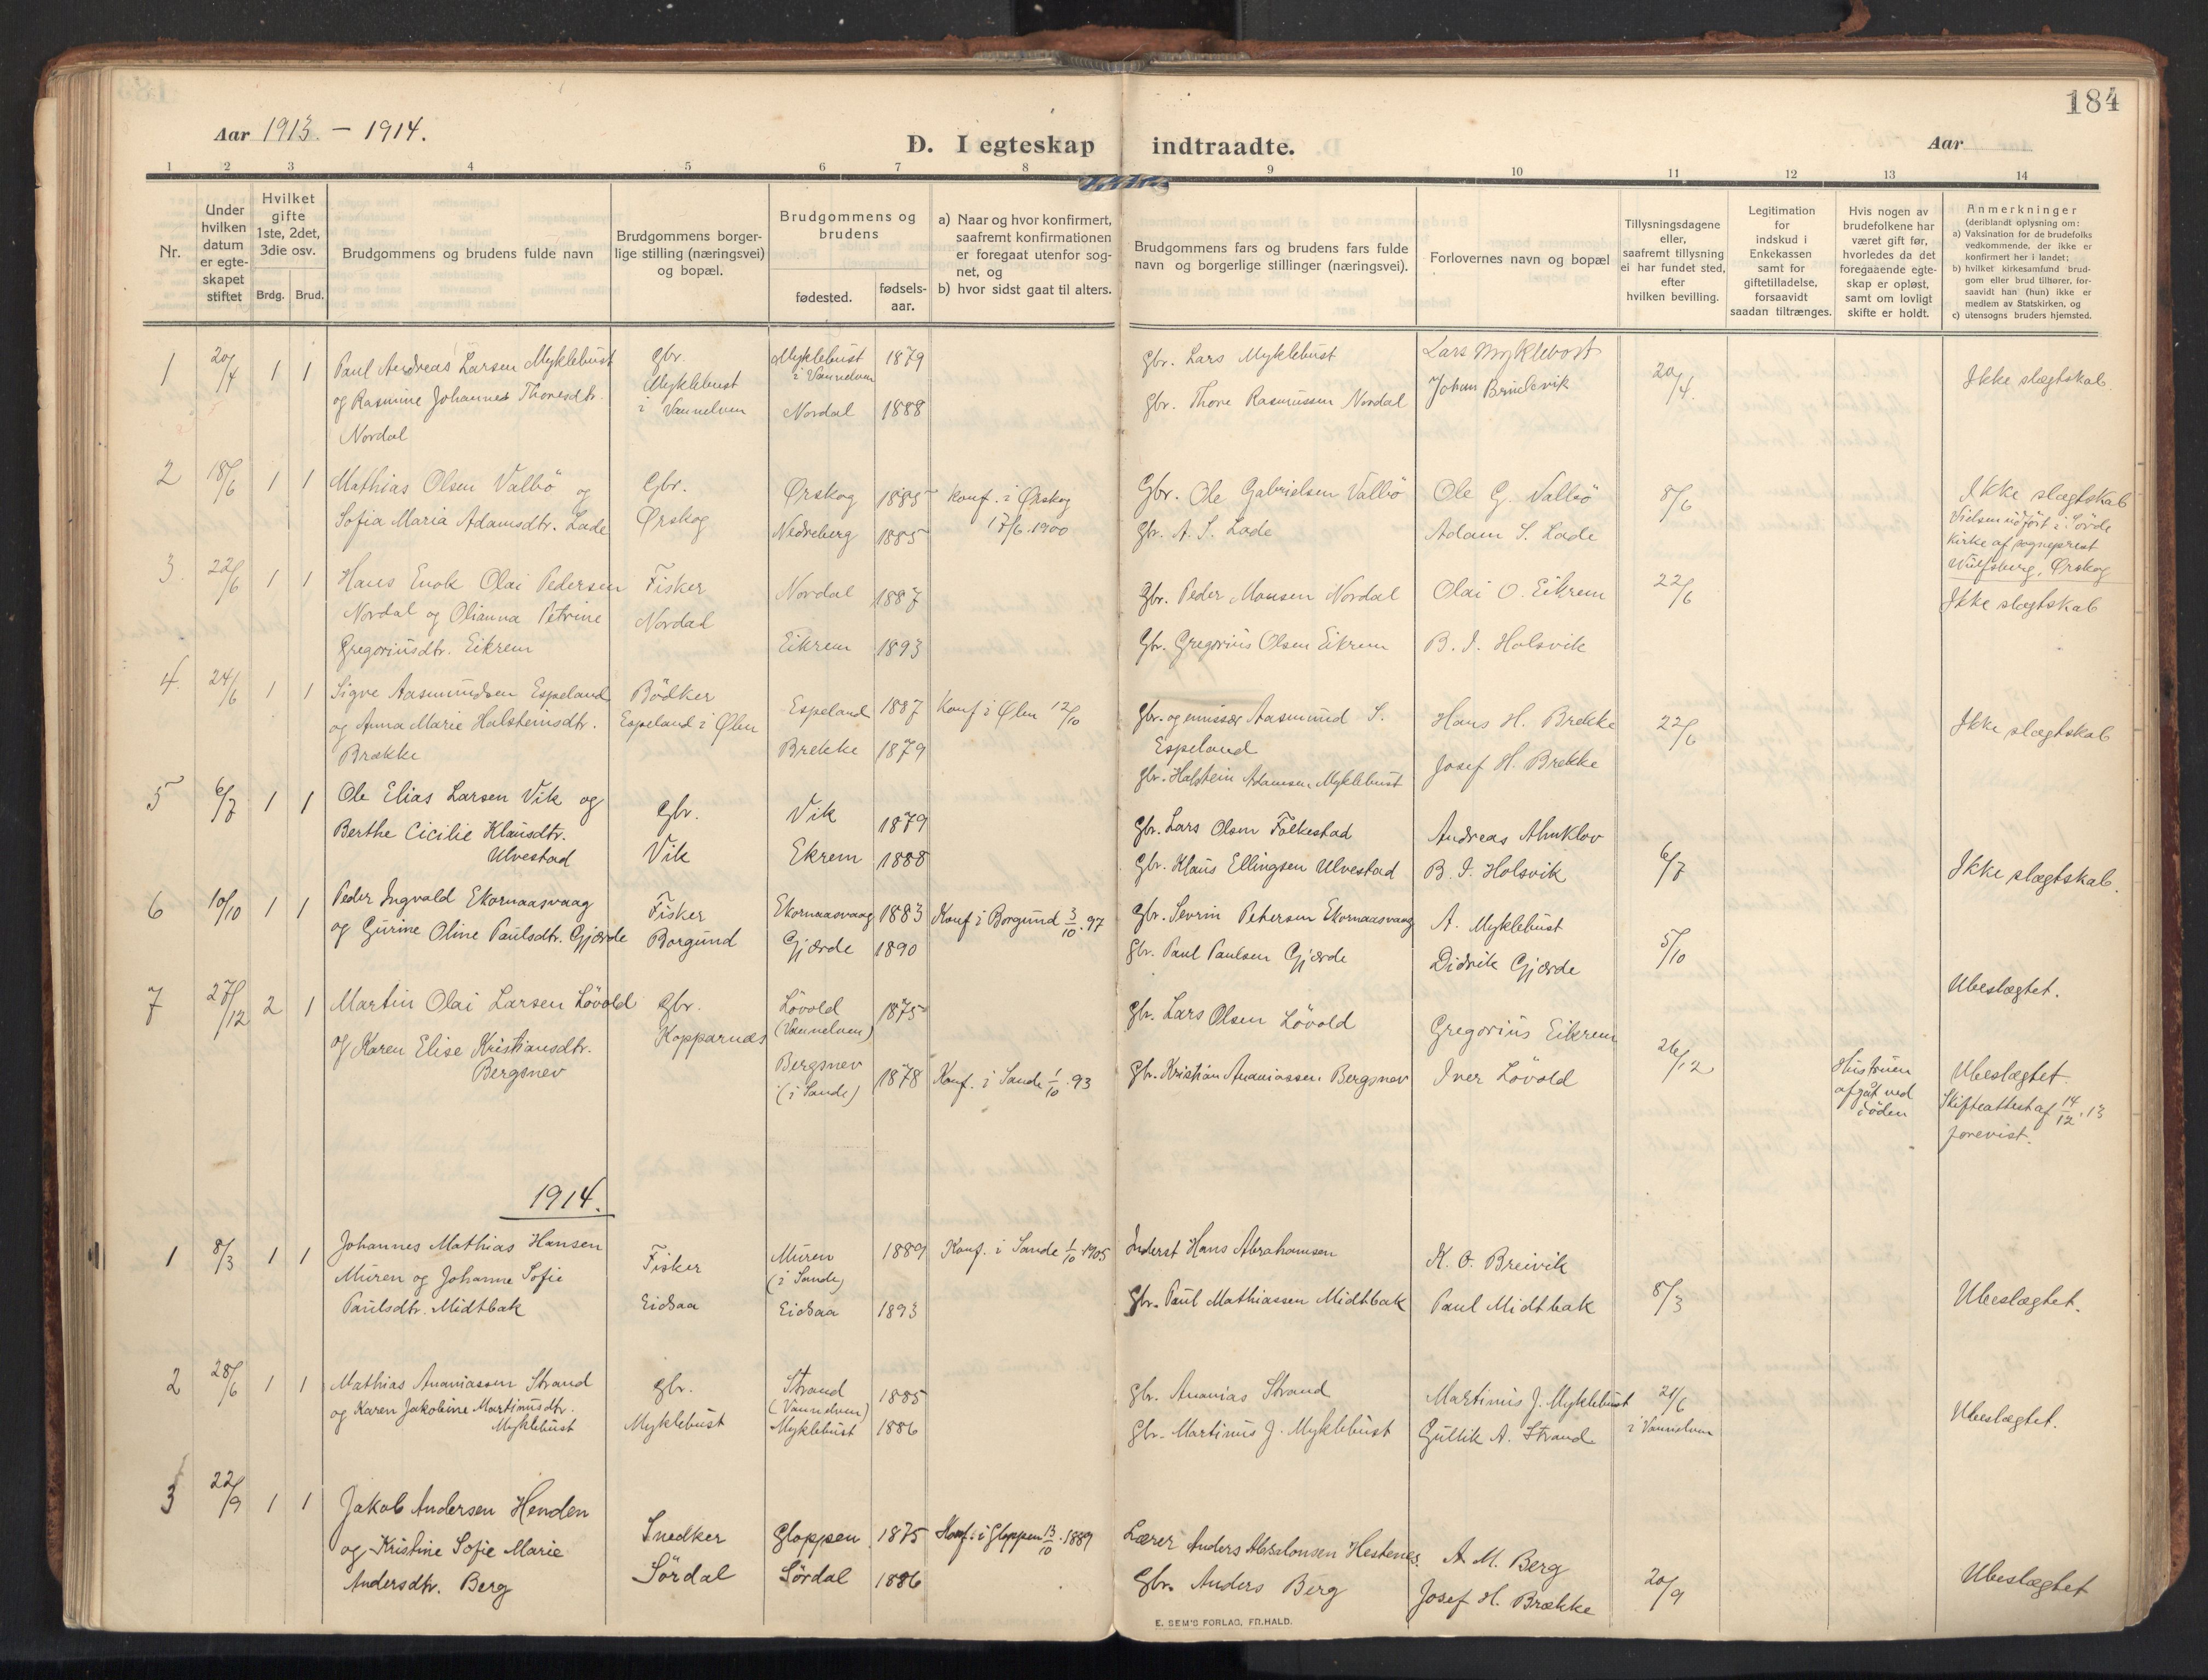 184
Aar 1913 - 1914.
D. I egteskap indtraadte.
Aar
1 2 3 4 5 6 7 8 9 10 11 12 13 14
Nr.
Under hvilken datum er egte-skapet stiftet
Hvilket gifte 1ste, 2det, 3die osv.
Brdg. Brud.
Brudgommens og brudens fulde navn
Brudgommens borger-lige stilling (næringsvei) og bopæl.
Brudgommens og brudens
fødested.
fødsels-aar.
a) Naar og hvor konfirmert, saafremt konfirmationen er foregaat utenfor sog-net, og
b) hvor sidst gaat til alters.
Brudgommens fars og brudens fars fulde navn og borgerlige stillinger (næringsvei).
Forlovernes navn og bopæl
Tillysningsdagene eller, saafremt tillysning ei har fundet sted, efter hvilken bevilling.
Legitimation for indskud i Enkekassen samt for giftetilladelse, forsaavidt saadan tiltrænges.
Hvis nogen av brudefolkene har været gift før, hvorledes da det foregaaende egte-skap er opløst, samt om lovligt skifte er holdt.
Anmerkninger
(deriblandt oplysning om:
a) Vaksination for de brudefolks vedkommende, der ikke er konfirmert her i landet;
b) hvilket kirkesamfund brud-gom eller brud tilhører, for-saavidt han (hun) ikke er medlem av Statskirken, og
c) utensogns bruders hjemsted.
1 20/4 1 1 Paul Andreas Larsen Myklebust Gbr. Myklebust 1879 Gbr. Lars Myklebust Lars Myklebost 20/4 Ikke slægtskab
og Rasmine Johannes Thoresdtr. Myklebust i Vannelven
Nordal i Vannelven Nordal 1888 Gbr. Thore Rasmussen Nordal Johan Brudevik
2 18/6 1 1 Mathias Olsen Valbö og Gbr. Ørskog 1885 Konf. i Ørskog Gbr. Ole Gabrielsen Valbö Ole G. Valbö 8/6 Ikke slægtskab
Sofia Maria Adamsdtr. Lade Ørskog Nedreberg 1885 17/6.1900 Gbr. A. S. Lade Adam S. Lade Vielsen udfört i Sövde
Kirke af sogneprest
Wulfsberg, Ørskog
3. 22/6 1 1 Hans Enok Olai Pedersen Fisker Nordal 1887 Gbr. Peder Monsen Nordal Olai O. Eikrem 22/6 Ikke slægtskab
Nordal og Olianna Petrine Nordal
Gregoriusdtr. Eikrem Eikrem 1893 Gbr. Gregorius Olsen Eikrem B. I. Holsvik
4. 24/6 1 1 Sigve Aasmundsen Espeland Bödker Espeland 1887 Konf i Ølen 12/10 Gbr. og emissær Aasmund S. Hans H. Brekke 22/6 Ikke slægtskab
og Anna Marie Halsteinsdtr. Espeland i Ølen Espeland
Brække Brekke 1879 Gbr. Halstein Adamsen Myklebust Josef H. Brekke
5 6/7 1 1 Ole Elias Larsen Vik og Gbr. Vik 1879 Gbr. Lars Olsen Folkestad Andreas Almklov 6/7 Ikke slægtskab.
Berthe Cicilie Klausdtr. Vik Ekrem 1888 Gbr. Klaus Ellingsen Ulvestad B. I. Holsvik
Ulvestad
6 10/10 1 1 Peder Ingvald Ekornaasvaag Fisker Ekornaasvaag 1883 Konf i Borgund 3/10.97 Gbr. Sevrin Petersen Ekornaasvaag A. Myklebust 5/10 Ubeslægtet.
og Gurine Oline Paulsdtr. Gjærde Borgund Gjærde 1890 Gbr. Paul Paulsen Gjærde Didrik Gjærde
7 27/12 2 1 Martin Olai Larsen Lövold Gbr. Lövold (Vannelven) 1875 Gbr. Lars Olsen Lövold Gregorius Eikrem 26/12 Hustruen afgåt ved döden Ubeslægtet.
og Karen Elise Kristiansdtr. Kopparnes Bergsnev (i Sande) 1878 Konf. i Sande 1/10.93 Gbr. Kristian Ananiassen Bergsnev Iver Lövold Skifteattest af 14/12.13
Bergsnev forevist.
1914.
1 8/3 1 1 Johannes Mathias Hansen Fisker Muren (i Sande) 1889 Konf. i Sande 1/10 1905 Inderst Hans Abrahamsen K. O. Breivik 8/3 Ubeslægtet.
Muren og Johanne Sofie
Paulsdtr. Midtbak Eidsaa Eidsaa 1893 Gbr. Paul Mathiassen Midtbak Paul Midtbak
2 28/6 1 1 Mathias Ananiassen Strand Gbr. Strand (Vannelven) 1885 Gbr. Ananias Strand Martinus J. Myklebust 21/6 Ubeslægtet.
og Karen Jakobine Martinusdtr. Myklebust Myklebust 1886 Gbr. Martinus J. Myklebust Gullik A. Strand i Vannelven
Myklebust
3 22/9 1 1 Jakob Andersen Henden Snedker Gloppen 1875 Konf. i Gloppen 13/10.1889 Lærer Anders Absalonsen Hestenes. A. M. Berg 20/9 Ubeslægtet
og Kristine Sofie Marie
Andersdtr. Berg Sördal Sördal 1886 Gbr. Anders Berg Josef H. Brække
E. SEM'S FORLAG, FR.HALD.